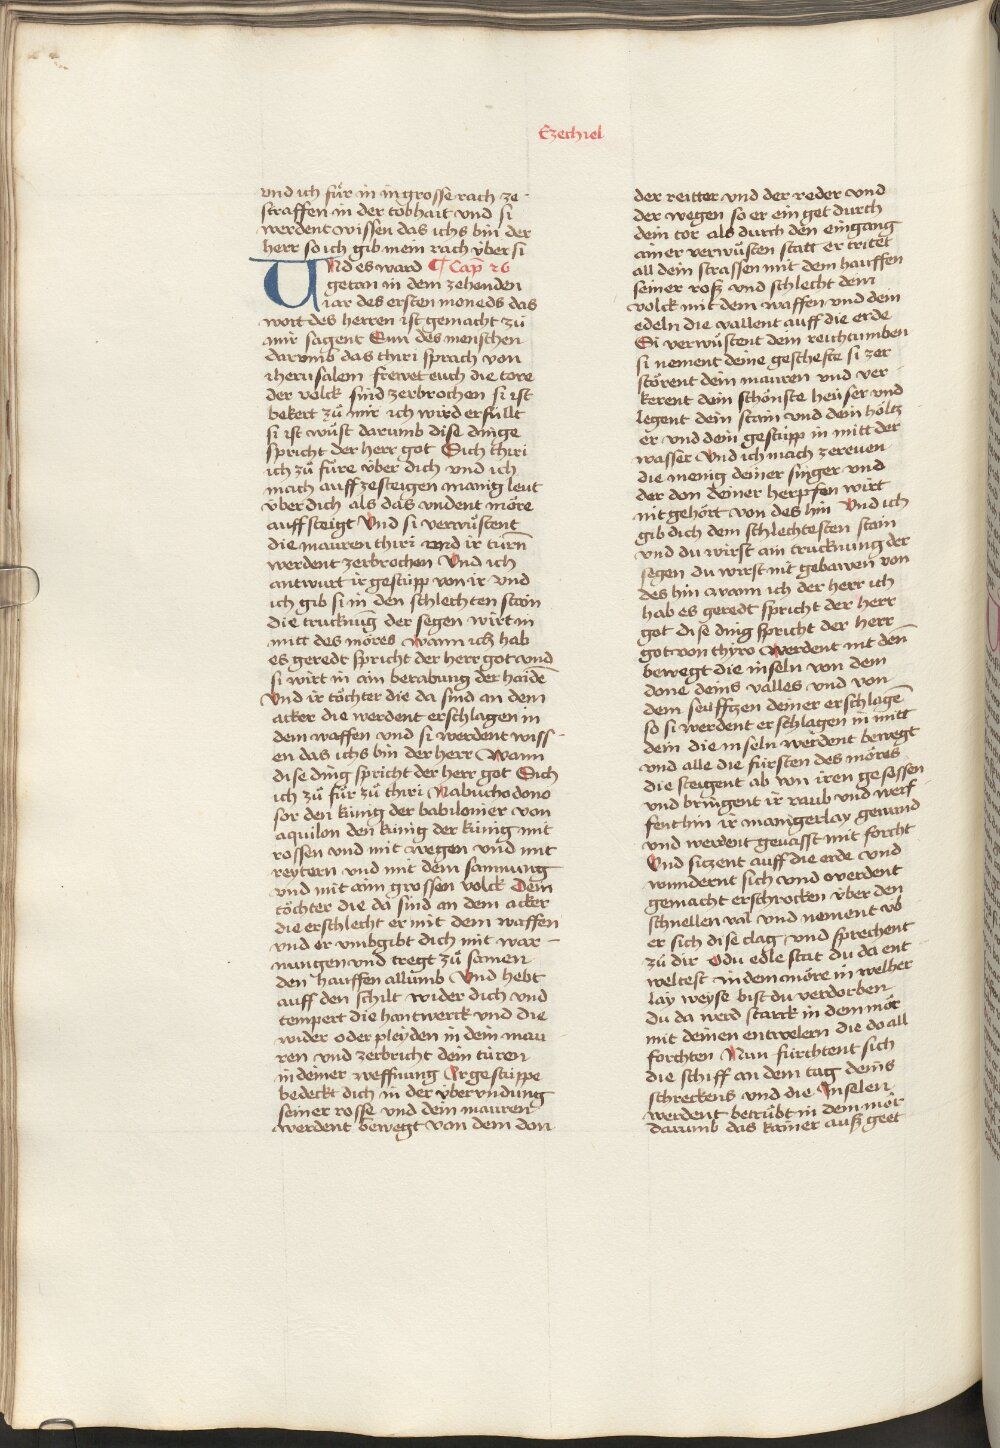 Ezechiel
vnd ich fu̇r in in grosse rach ze
straffen in der tobhait vnd si
werdent wissen das ichs bin der
herr so ich gib mein rach v̇ber si
Vnd es ward ¶ Cap̄ 26
getan in dem zehenden
iar des ersten moneds das
wort des herren ist gemacht zu̇
mir sagent Sun des menschen
darumb das thiri sprach von
iherusalem frewet euch die tore
der volck sind zerbrochen si ist
bekert zu̇ mir ich wird erfu̇llt
si ist wu̇st darumb dise dinge
spricht der herr got Sich thiri
ich zu̇ fu̇re v̇ber dich vnd ich
mach auff zesteigen manig leut
v̇ber dich als das vndent mo̊re
auff steigt Vnd si verwu̇stent
die mauren thiri vnd ir tu̇rn̄
werdent zerbrochen Vnd ich
antwurt ir gestu̇pp von ir vnd
ich gib si in den schlechten stain
die trucknūg der segen wirt in
mitt des mo̊res wann ich hab
es geredt spricht der herr got vnd
si wirt in ain berabung der haidē
Vnd ir to̊chter die da sind an dem
acker die werdent erschlagen in
dem waffen vnd si werdent wiss
en das ichs bin der herr Wann
dise ding spricht der herr got Sich
ich zu̇ fu̇r zu̇ thiri Nabuchodono
sor den ku̇nig der babilonier von
aquilon den ku̇nig der ku̇nig mit
rossen vnd mit wegen vnd mit
reytern vnd mit dem samnung
vnd mit aim grossen volck Dein
to̊chter die da sind an dem acker
die erschlecht er mit dem waffen
vnd er vmbgibt dich mit war
nungen vnd tregt zu̇ samen
den hauffen allumb Vnd hebt
auff den schilt wider dich vnd
tempert die hantwerck vnd die
wider oder pleyden in dein mau
ren vnd zerbricht dein tu̇ren
in deiner weffnung Ir gestu̇ppe
bedeckt dich in der v̇berundung
seiner rosse vnd dein mauren
werdent bewegt von dem don
der reitter vnd der reder vnd
der wegen so er ein get durch
dein tor als durch den eingang
ainer verwu̇sten statt er tritet
all dein strassen mit dem hauffen
seiner roß vnd schlecht dein
volck mit dem waffen vnd dein
edeln die vallent auff die erde
Si verwu̇stent dein reichtumben
si nement deine geschefte si zer
sto̊rent dein mauren vnd ver
kerent dein scho̊nste heu̇ser vnd
legent dein stain vnd dein ho̊ltz
er vnd dein gestu̇pp in mitt der
wasser Vnd ich mach zereuen
die menig deiner singer vnd
der don deiner herpfen wirt
nit geho̊rt von des hin Vnd ich
gib dich dem schlechtesten stain
vnd du wirst ain trucknung der
segen du wirst nit gebawen von
des hin wann ich der herr ich
hab es geredt spricht der herr
got dise ding spricht der herr
got von thyro Werdent nit den̄
bewegt die inseln von dem
done deins valles vnd von
dem seufftzen deiner erschlagē
so si werdent erschlagen in mitt
dein die inseln werdent bewegt
vnd alle die fu̇rsten des mo̊res
die steigent ab von iren gesässen
vnd bringent ir raub vnd werf
fent hin ir manigerlay gewand
vnd werdent geuasst mit forcht
Vnd siczent auff die erde vnd
wundernt sich vnd werdent
gemacht erschrocken v̇ber den
schnellen val vnd nement v̇b
er sich dise clag vnd sprechent
zu̇ dir O du edle stat du da ent
weltest in dem mo̊re in welher
lay weyse bist du verdorben
du da werd starck in dem mo̊r
mit deinen entwelern die do all
forchten Nun fu̇rchtent sich
die schiff an dem tag deins
schreckens vnd die Inselen
werdent betru̇bt in dem mo̊r
darumb das kainer auß geet